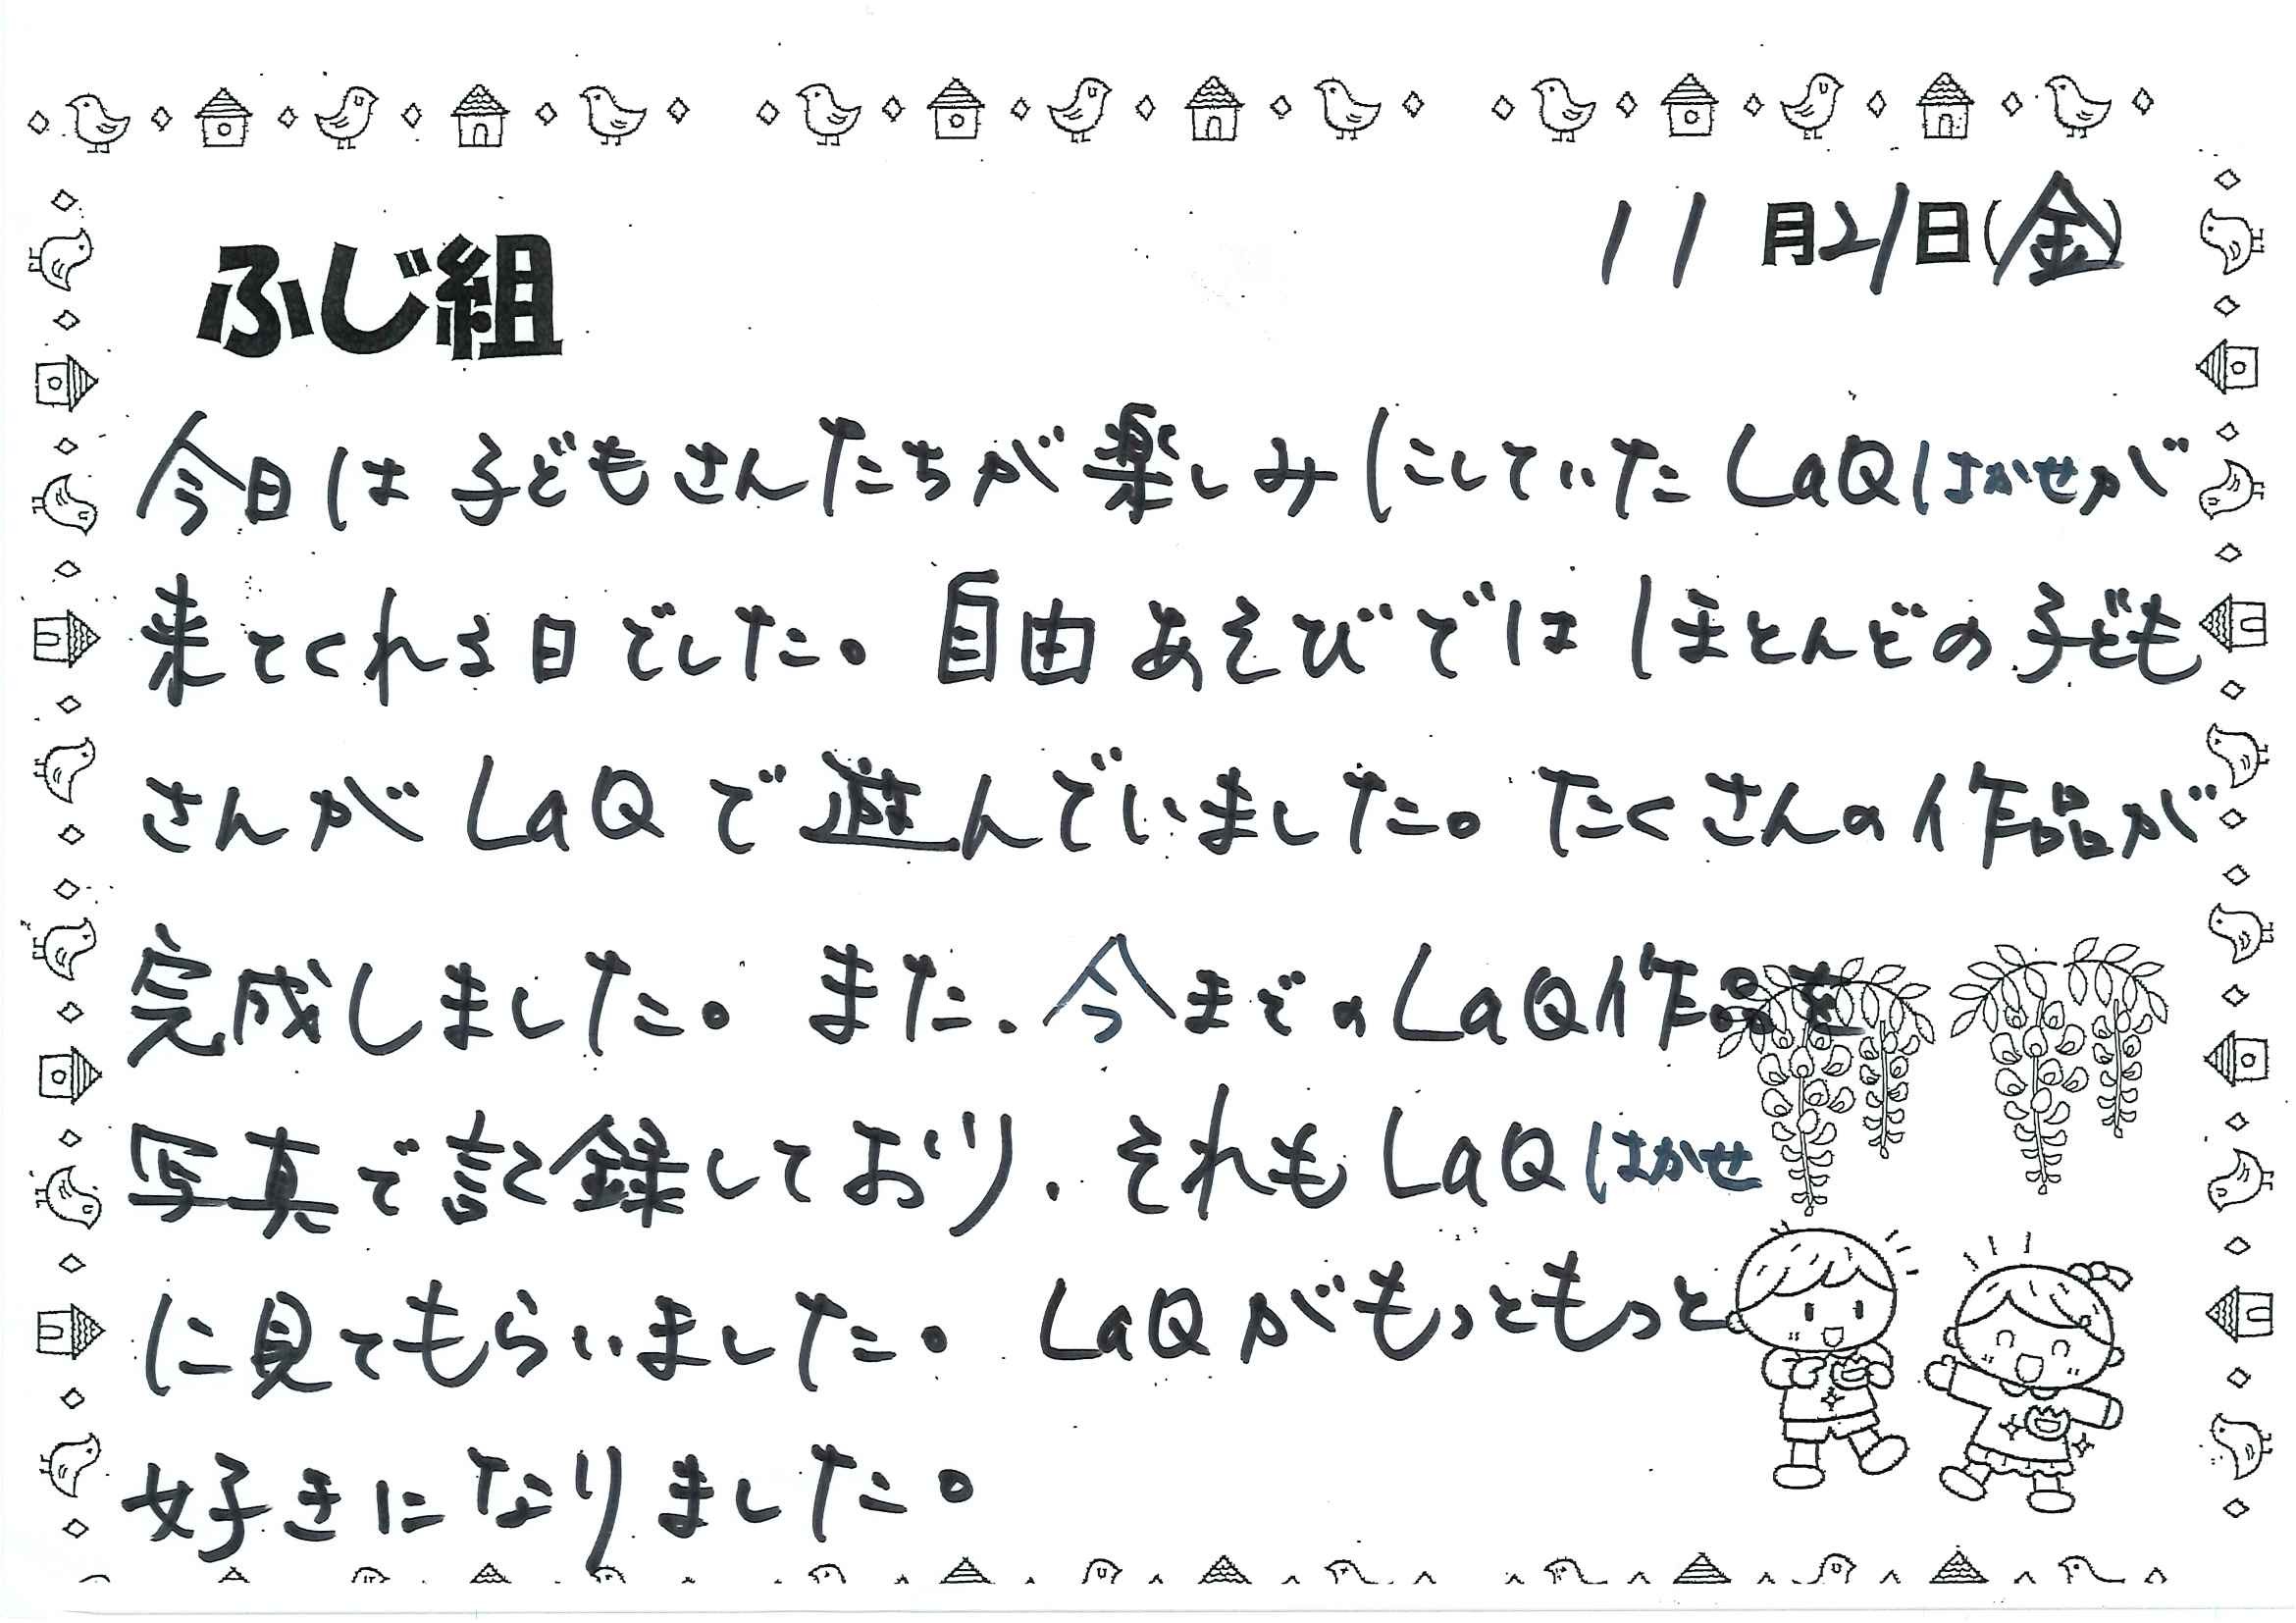 11月21日(金)
ふじ組
今日は子どもさんたちが楽しみにしていたLaQはかせが
来てくれる日でした。自由あそびではほとんどの子ども
さんがLaQで遊んでいました。たくさんの作品が
完成しました。また、今までのLaQ作品を
写真で記録しており、それもLaQはかせ
に見てもらいました。LaQがもっともっと
好きになりました。